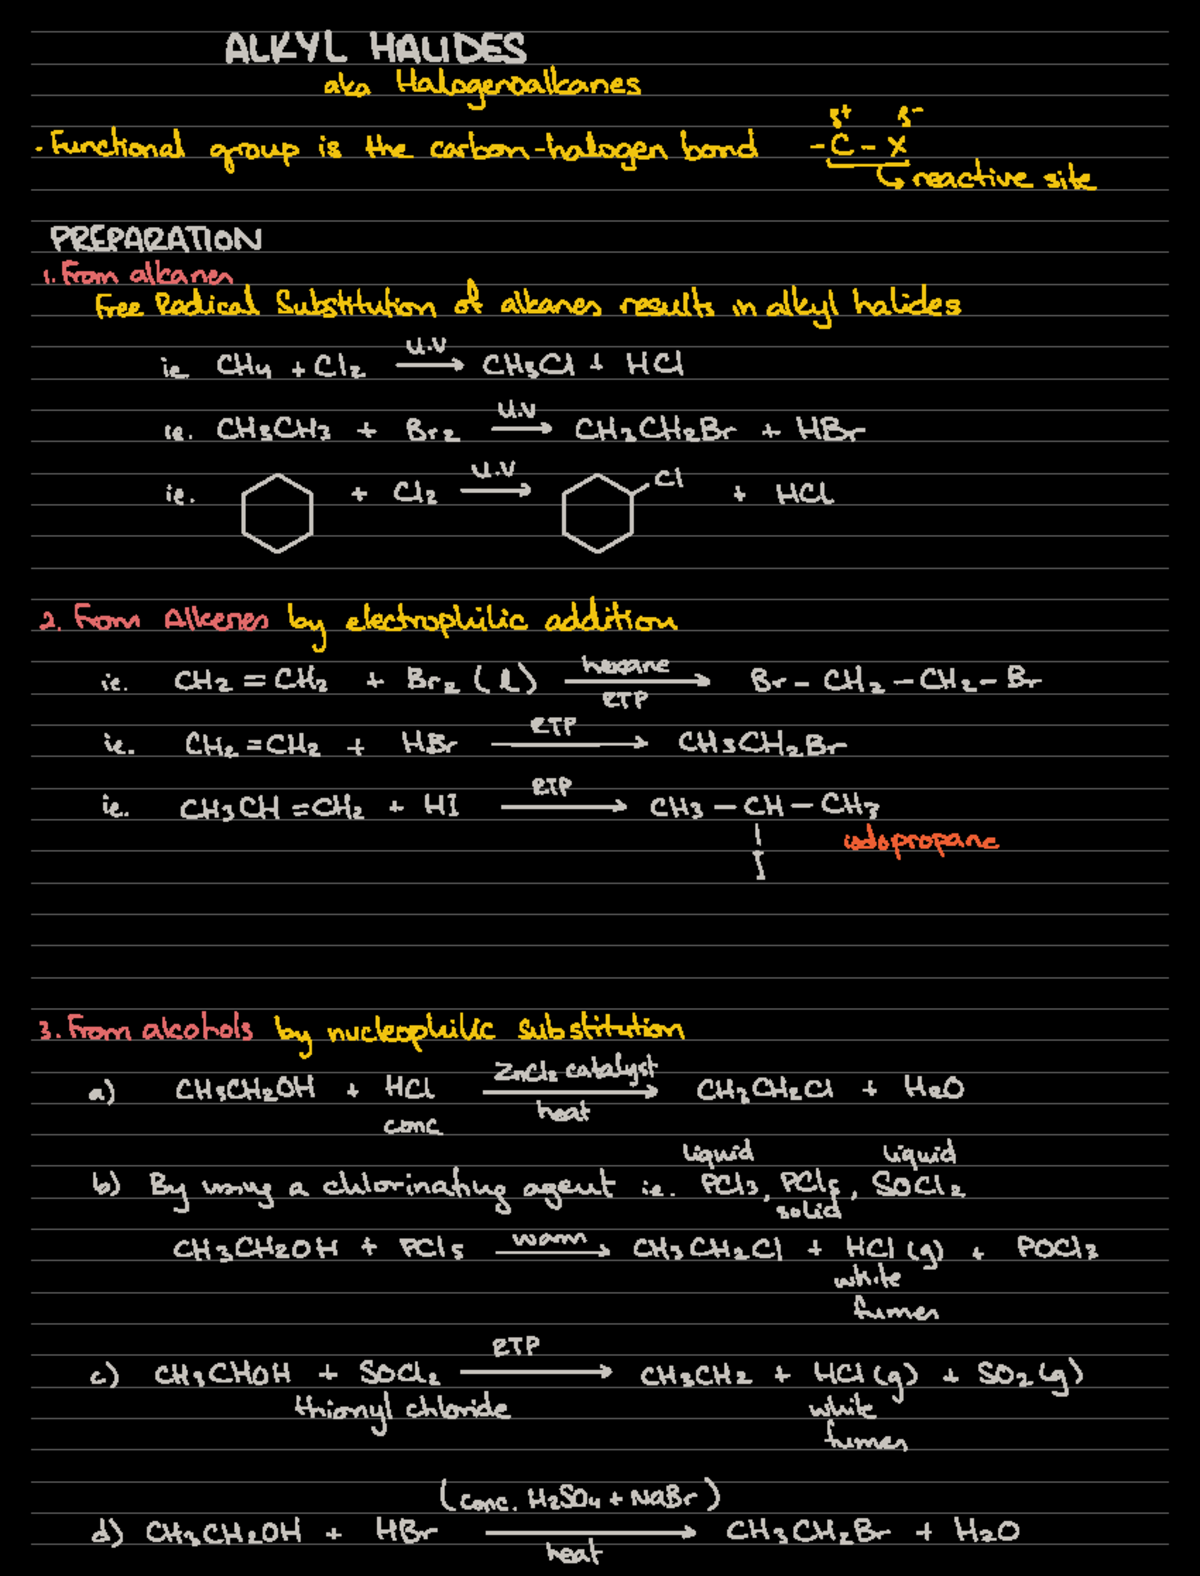 ALKYL HALIDES
aka Halogenoalkanes
· Functional group is the carbon-halogen bond
δ+ δ-
-C-X
↳ reactive site
PREPARATION
1. From alkanes
Free Radical Substitution of alkanes results in alkyl halides
ie CH4 + Cl2 U.V → CH3Cl + HCl
ie. CH3CH3 + Br2 U.V → CH3CH2Br + HBr
ie. + Cl2 U.V → Cl + HCl
2. From Alkenes by electrophilic addition
ie. CH2=CH2 + Br2 (l) hexane → RTP Br-CH2-CH2-Br
ie. CH2=CH2 + HBr RTP → CH3CH2Br
ie. CH3CH=CH2 + HI RTP → CH3-CH-CH3
I
iodopropane
3. From alcohols by nucleophilic substitution
a) CH3CH2OH + HCl ZnCl2 catalyst → heat CH3CH2Cl + H2O
conc
liquid liquid
b) By using a chlorinating agent ie. PCl3, PCl5, SOCl2
solid
CH3CH2OH + PCl5 warm → CH3CH2Cl + HCl (g) + POCl3
white
fumes
c) CH3CHOH + SOCl2 RTP → CH3CH2 + HCl (g) + SO2 (g)
thionyl chloride white
fumes
(conc. H2SO4 + NaBr)
d) CH3CH2OH + HBr → CH3CH2Br + H2O
heat